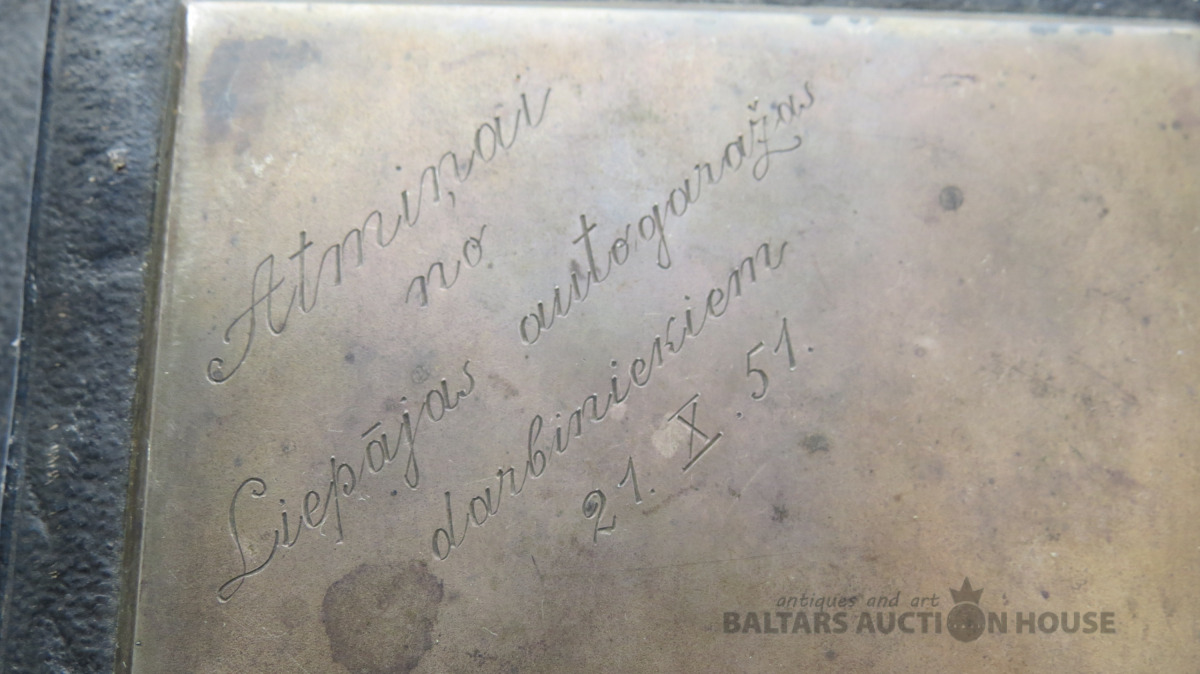 Atmiņai
no
Liepājas autogaražas
darbiniekiem
21. X. 51.
antiques and art
BALTARS AUCTION HOUSE